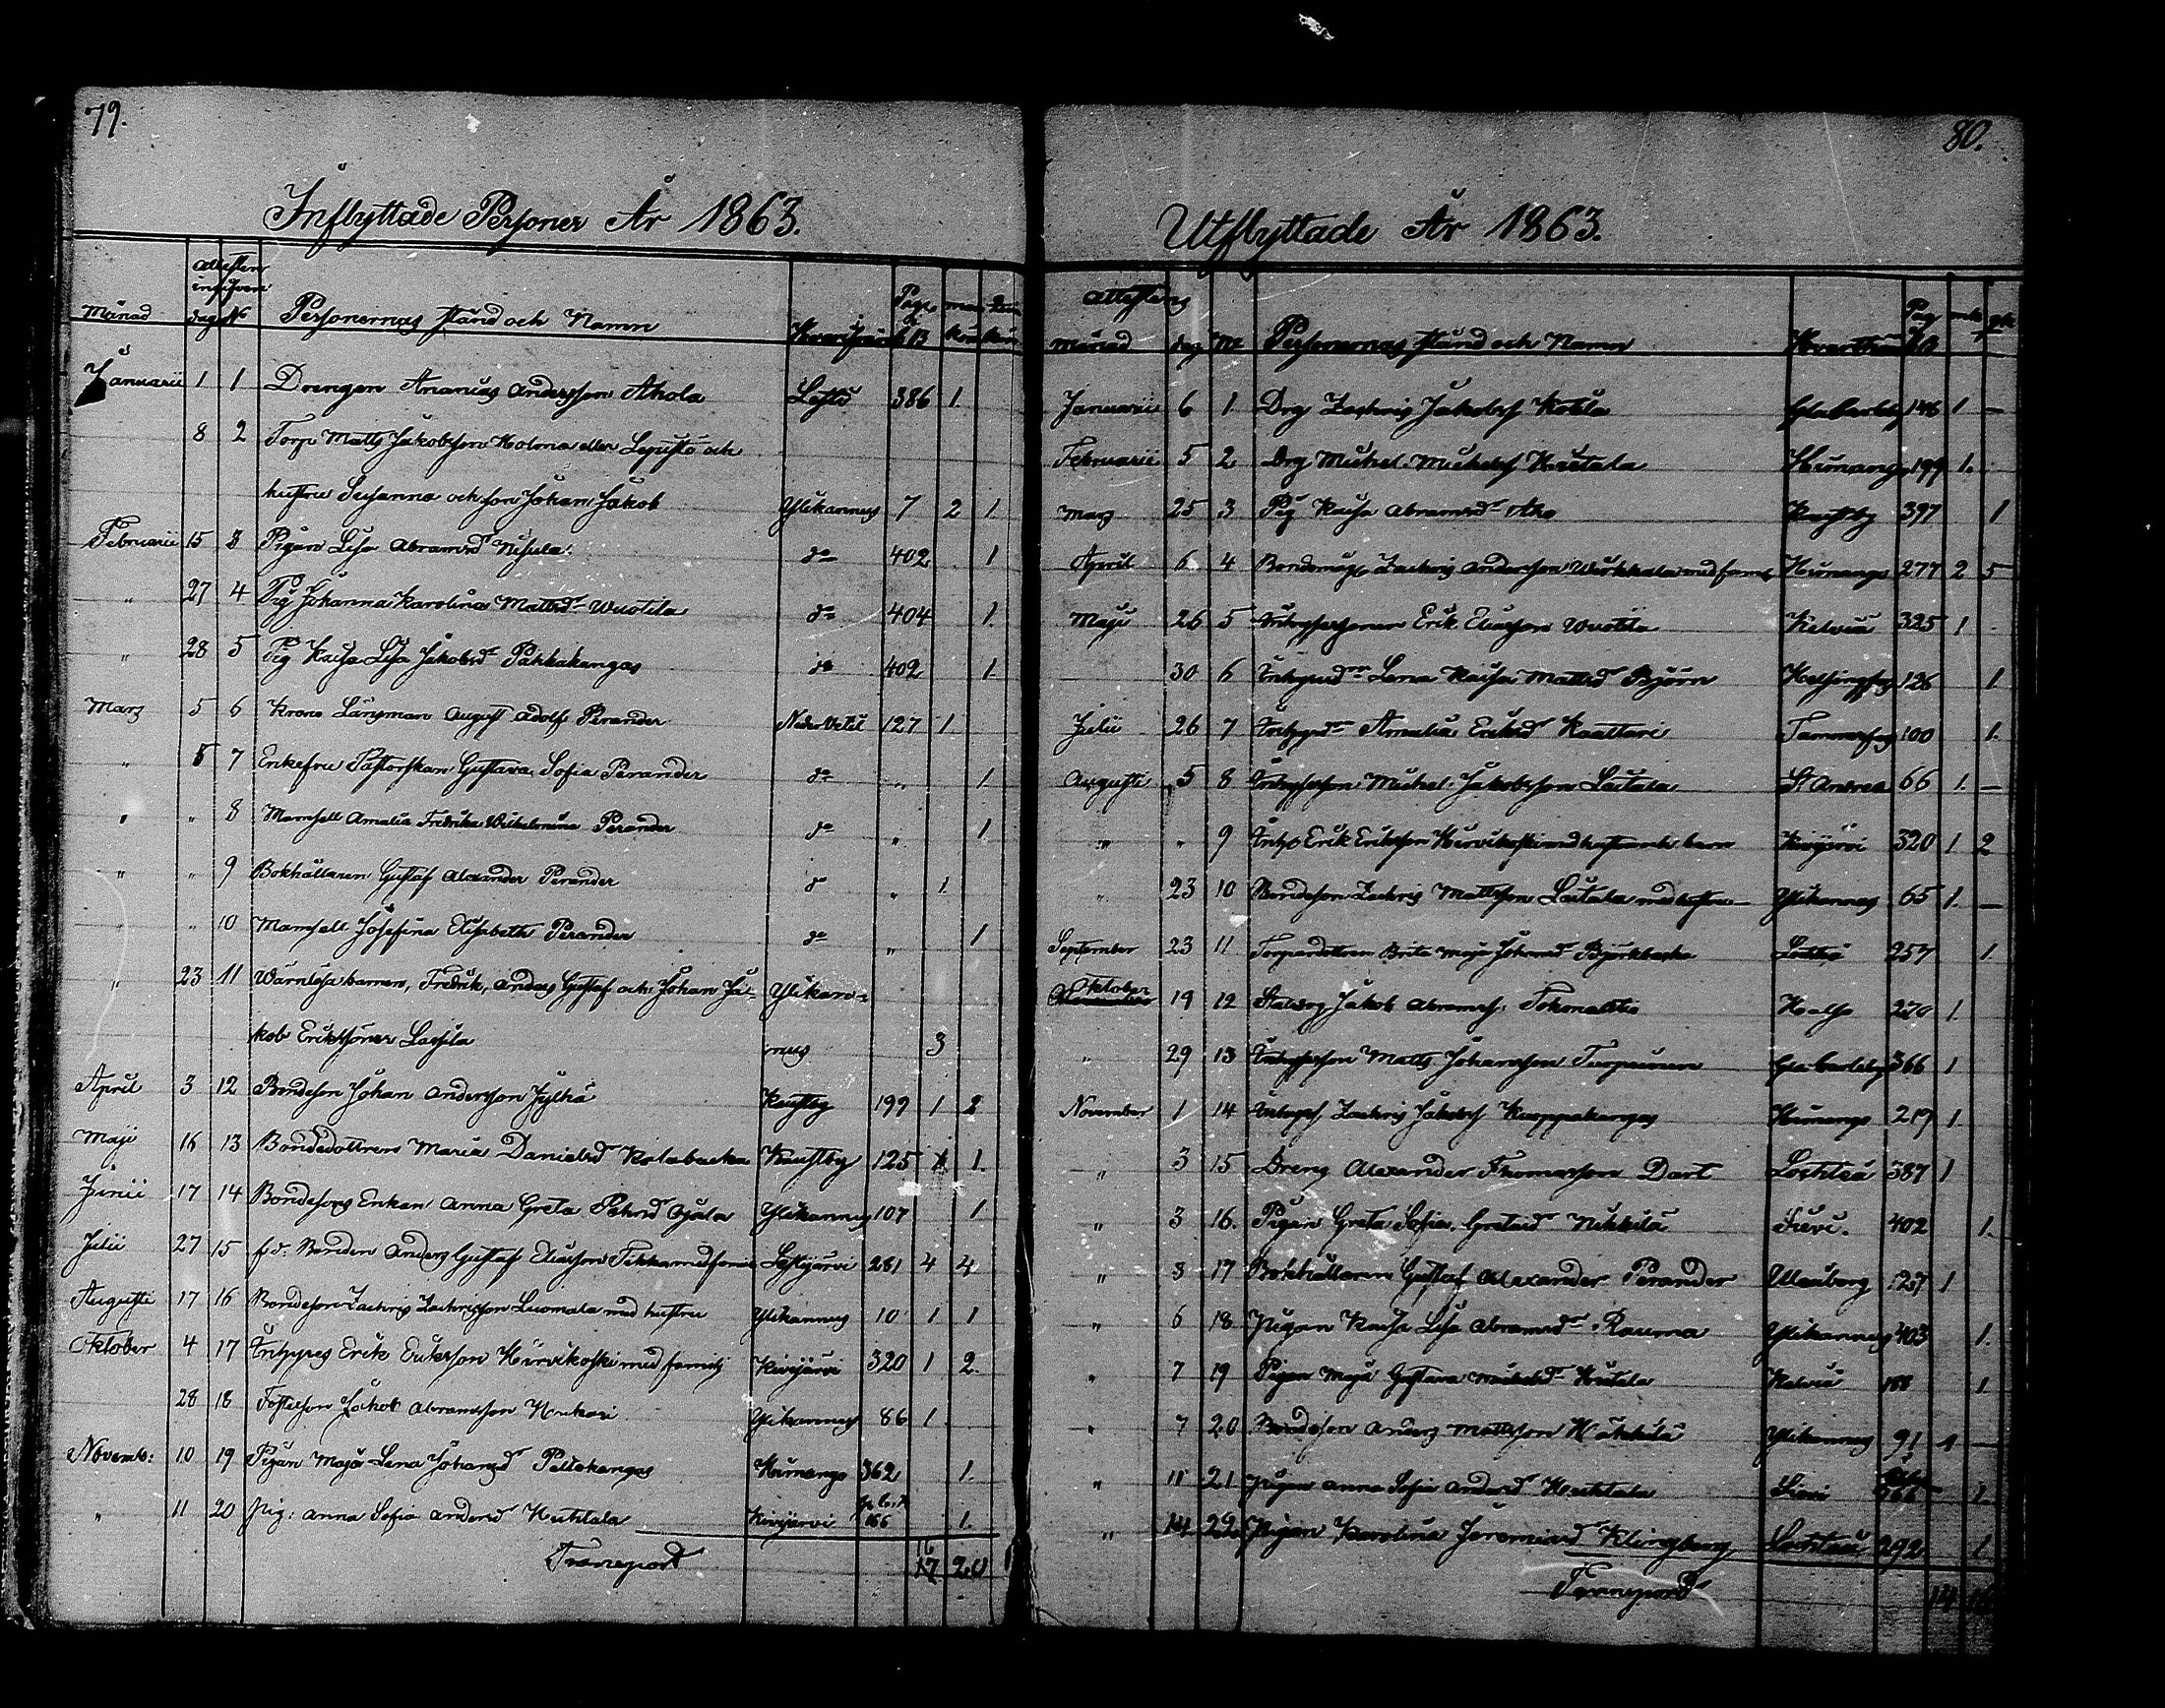 79.
Inflyttade Personer År 1863.
Månad dag No Personernas stånd och Namn Pag
Januarii 1 1 Drengen Ananias Andersson Ahola 386 1.
8 2 Torp Matts Jakobsson Holma eller och
hustru Susanna och son Johan Jakob Ylikannus 7 2 1.
Februarii 15 3 Pigan Lisa Abramsd Nisula do 402 1
" 27 4 Pig Johanna Karolina Mattsd Wuotila do 404 1.
" 28 5 Pig Kaisa Lisa Jakobsd Pahkakangas do 402 1.
Mars 5 6 Krono Länsman August Adolf Perander Neder Vetil 127 1
" 5 7 Enkefru Pastorskan Gustava Sofia Perander do " 1.
" " 8 Mamsell Amalia Fredrika Wilhelmina Perander do " 1
" " 9 Bokhållaren Gustaf Alexander Perander do " 1.
" " 10 Mamsell Josefina Elisabeth Perander do " 1
" 23 11 Wärnlösa barnen, Fredrik, Anders Gustaf och Johan Ja- Ylikan-
kob Erikssöner Lassila nus 3
April 3 12 Bondeson Johan Andersson Jylhä Kaustby 199 1 2
Maji 16 13 Bondedottren Maria Danielsd Kaustby 125 1.
Junii 17 14 Bondesons Enkan Anna Greta Petersd Ojala Ylikannus 107 1
Julii 27 15 f.d. Bonden Anders Gustaf Eliasson med familj Lestijärvi 281 4 4
Augusti 17 16 Bondeson Zachris Zachrisson Luomala med hustru Ylikannus 10 1 1
Oktober 4 17 Inhyses Erik Eriksson Hirvikoski med familj Kivijärvi 320 1 2.
28 18 Fosterson Jakob Abramsson Ylikannus 86 1
Novemb: 10 19 Pigan Maja Lena Johansd Peltokangas Himango 362 1.
" 11 20 Pig: Anna Sofia Andersd Huhtala Kivijärvi 166 1.
Transport 17 20
80.
Utflyttade År 1863.
Attestens
Månad dag No Personernas stånd och Namn Hvarthän Pag
Januarii 6 1. Drg Zachris Jakobss Kotila Gla Carleby 146 1 —
Februarii 5 2 Drg Michel Michelss Himango 199 1.
Mars 25 3 Pig Kaisa Abramsd Aho Kaustby 397 1
April 6 4 Zachris Andersson med familj Himango 277 2 5
Maji 26 5 Inhysessonen Erik Eliasson Wuotila Kelviå 325 1
30 6 Lena Kaisa Mattsd Björn Helsingfors 126 1.
Julii 26 7 Amalia Eriksd Kaattari Tammerfors 100 1.
Augusti 5 8 Inhysesson Michel Jakobsson Laitala St Andrea 66 1. —
" " 9 Inhys Erik Eriksson Hirvikoski med hustru och barn Kivijärvi 320 1 2
" 23 10 Bondeson Zachris Mattsson Laitala med hustru Ylikannus 65 1. —
September 23 11 Torpardottren Brita Maja Johansd Björkbacka Lochteå 257 1.
Oktober 19 12 Jakob Abramss Halso 270 1.
" 29 13 Inhysesson Matts Johansson Gla Carleby 366 1
November 1 14 Zachris Jakobss Karppakangas Himango 217 1.
" 3 15 Dreng Alexander Thomasson Dart Lochteå 387 1
" 3 16. Pigan Greta Sofia Gretasd Nikkilä Sievi. 402 1.
" 3 17 Bokhållaren Gustaf Alexander Perander Uleåborg 127 1
" 6 18 Pigan Kaisa Lisa Abramsd Rauma Ylikannus 403 1.
" 7 19 Pigan Maja Gustava Michelsd Kelviå 188 1.
" 7 20 Bondeson Anders Mattsson Ylikannus 91 1 —
" 11 21 Pigan Anna Sofia Andersd Huhtala Sievi 1.
" 14 22 Pigan Karolina Jeremiasd Klingberg Lochteå 292 1
Transport 14